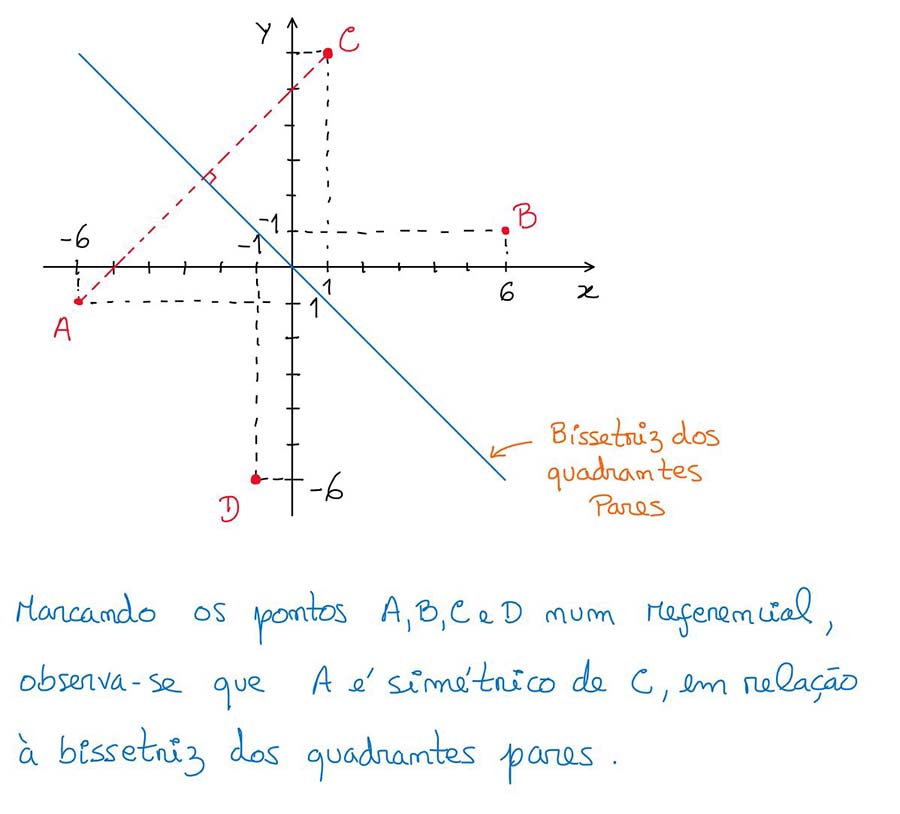 y
C
B
-1
-6
-1
1
6
x
1
A
Bissetriz dos
quadrantes
Pares
-6
D
Marcando os pontos A, B, C e D num referencial,
observa-se que A é simétrico de C, em relação
à bissetriz dos quadrantes pares.